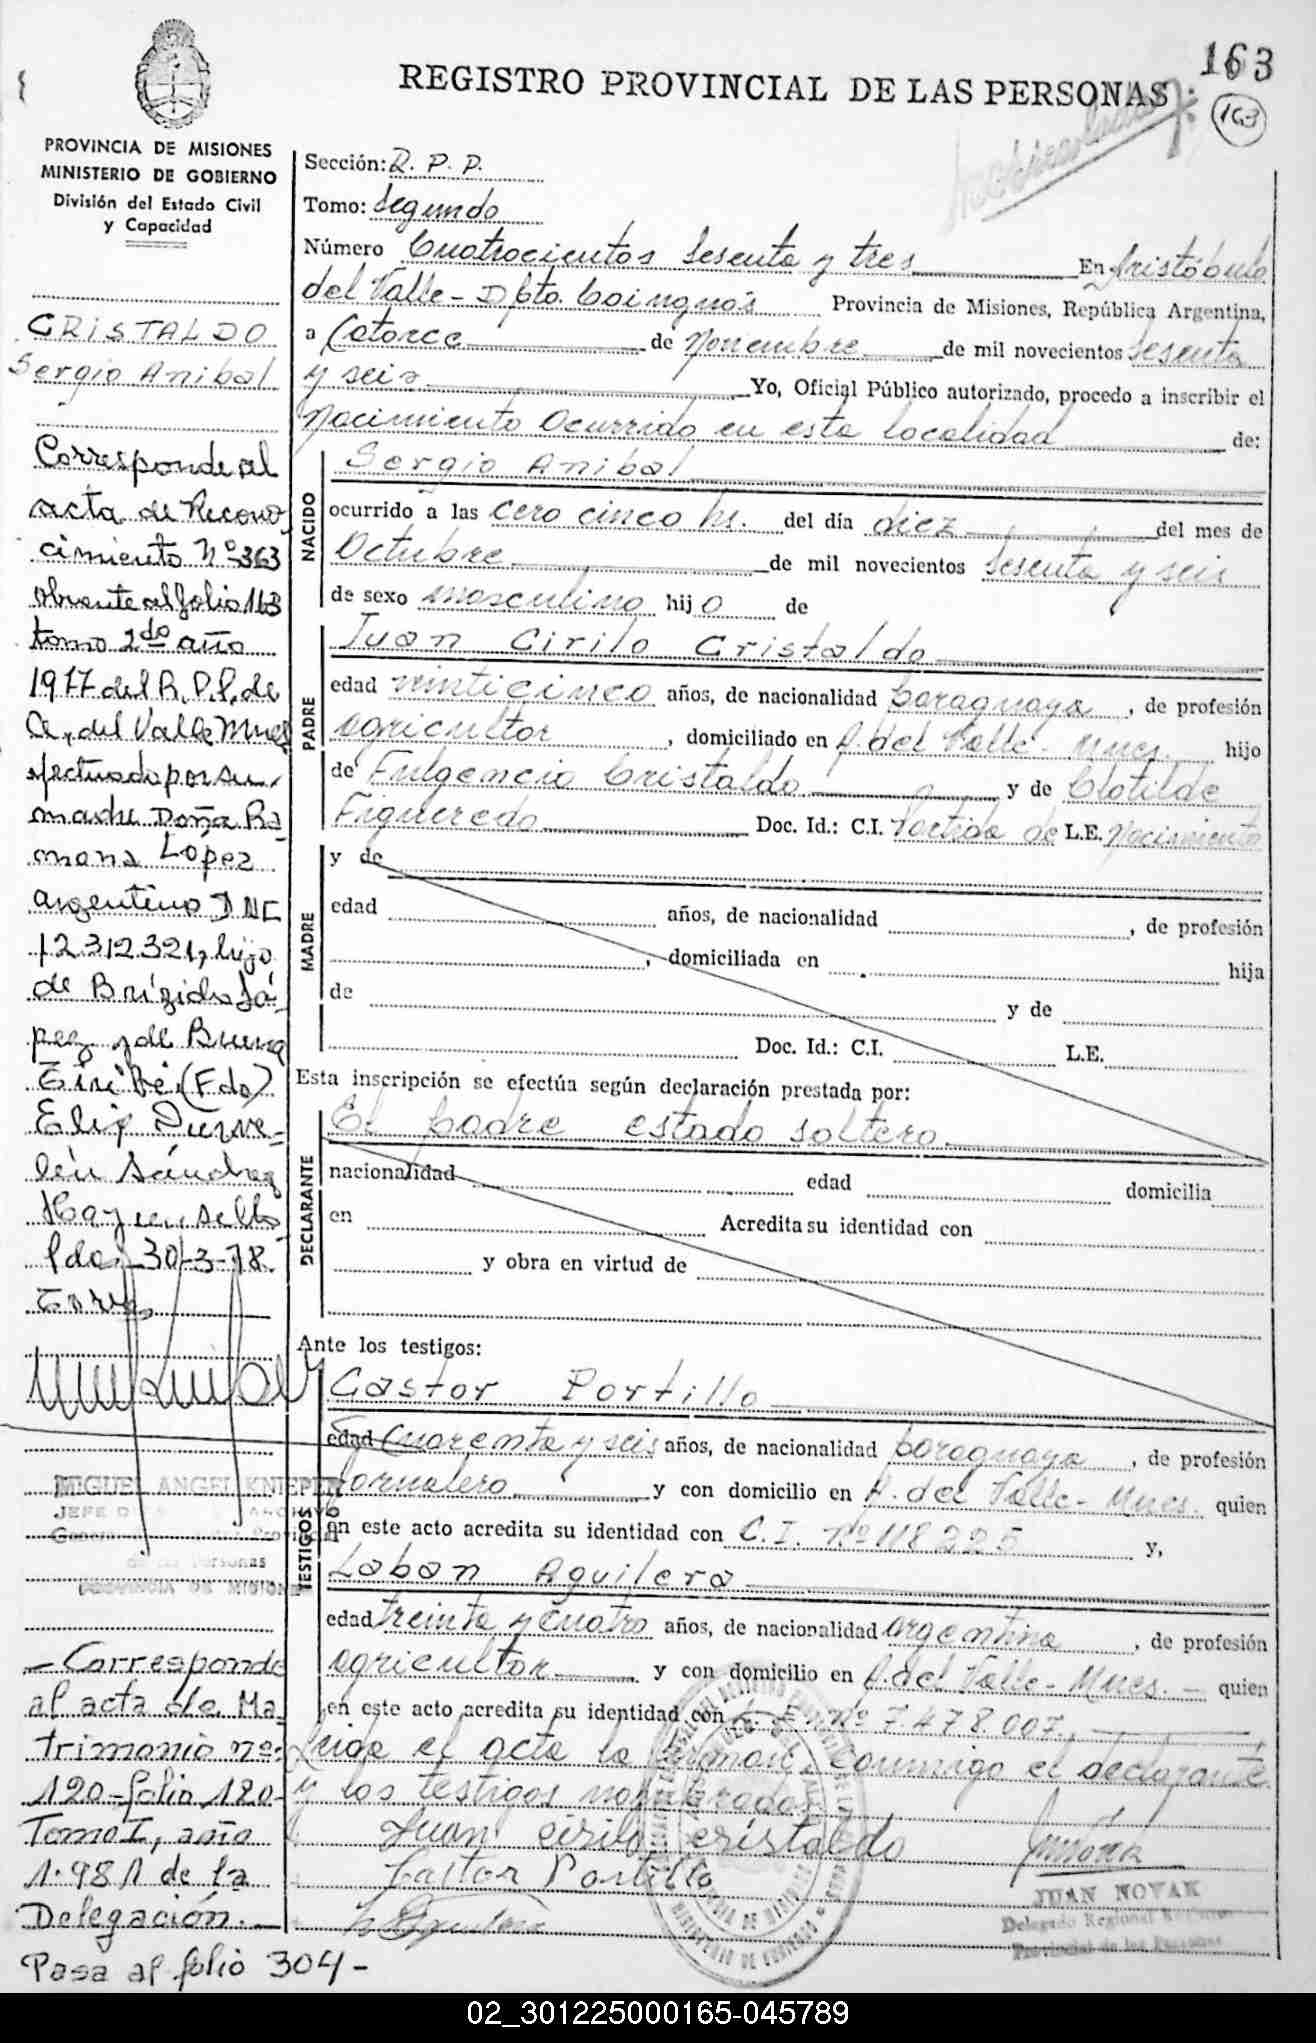 163
REGISTRO PROVINCIAL DE LAS PERSONAS
163
PROVINCIA DE MISIONES
MINISTERIO DE GOBIERNO
División del Estado Civil
y Capacidad
CRISTALDO
Sergio Anibal
Corresponde al
acta de Recono
cimiento Nº 363
obrante al folio 163
tomo 2do año
1977 del R.P.P. de
A. del Valle Mnes
efectuado por su
madre Doña Ra-
mona López
argentino DNI
12.312.321, hijo
de Brígido Ló-
pez y de Buena
(Fdo)
Sánchez
Hay un sello
Pdas 30-3-78.
MIGUEL ANGEL KNIEPER
JEFE ARCHIVO
de las Personas
PROVINCIA DE MISIONES
- Corresponde
al acta de Ma-
trimonio nº-
120-folio 120-
Tomo I, año
1.981 de la
Delegación.-
Pasa al folio 304-
Sección: R. P. P.
Tomo: Segundo
Número Cuatrocientos Sesenta y tres En Aristóbulo
del Valle - Dpto. Cainguás Provincia de Misiones, República Argentina,
a Catorce de Noviembre de mil novecientos Sesenta
y seis Yo, Oficial Público autorizado, procedo a inscribir el
Nacimiento Ocurrido en esta localidad de:
NACIDO
Sergio Anibal
ocurrido a las cero cinco hs. del día diez del mes de
Octubre de mil novecientos Sesenta y seis
de sexo masculino hijo de
PADRE
Juan Cirilo Cristaldo
edad veinticinco años, de nacionalidad paraguaya, de profesión
agricultor, domiciliado en A. del Valle - Mnes. hijo
de Fulgencio Cristaldo y de Clotilde
Figueredo Doc. Id.: C.I. Partida de L.E. Nacimiento
MADRE
y de
edad años, de nacionalidad , de profesión
, domiciliada en hija
de y de
Doc. Id.: C.I. L.E.
Esta inscripción se efectúa según declaración prestada por:
DECLARANTE
El padre estado soltero
nacionalidad edad domicilia
en Acredita su identidad con
y obra en virtud de
Ante los testigos:
TESTIGOS
Gastor Portillo
edad Cuarenta y seis años, de nacionalidad paraguaya, de profesión
Jornalero y con domicilio en A. del Valle - Mnes. quien
en este acto acredita su identidad con C.I. Nº 118225 y,
Laban Aguilera
edad treinta y cuatro años, de nacionalidad argentina, de profesión
agricultor y con domicilio en A. del Valle - Mnes. - quien
en este acto acredita su identidad con L. E. Nº 7.478.007.,
Leida el acta la firman, conmigo el declarante
y los testigos nombrados.
Juan cirilo cristaldo
Gastor Portillo
JUAN NOVAK
Delegado Regional Registro
Provincial de las Personas
02_301225000165-045789